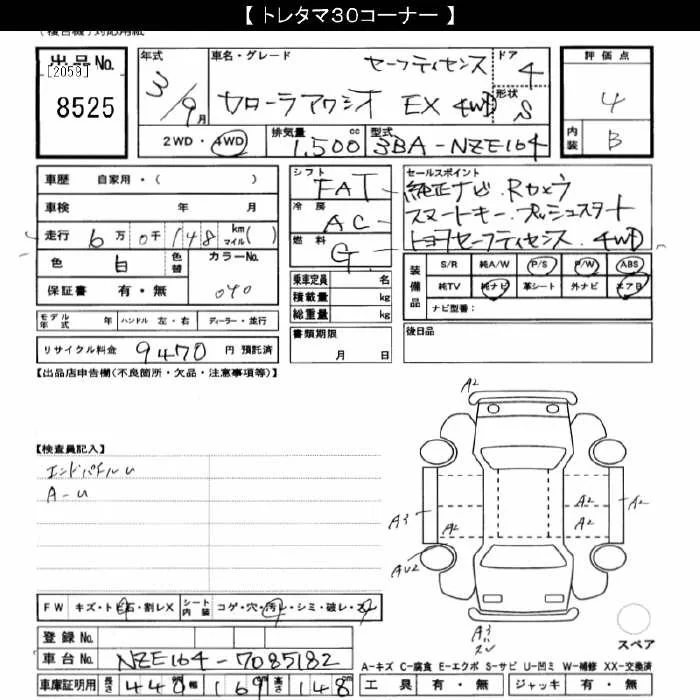 【トレタマ30コーナー】
(複合機)対応用紙
出品No.
[2059]
8525
年式
3/9月
車名・グレード
セーフティセンス
カローラアクシオ EX 4WD
ドア
4
形状
S
評価点
4
内装
B
2WD・4WD
排気量
1,500cc
型式
3BA-NZE164
車歴 自家用・( )
車検 年 月
走行 6万0千148kmマイル( )
色 白 色替 カラーNo.
040
保証書 有・無
モデル年式 年 ハンドル 左・右 ディーラー・並行
リサイクル料金 9470 円 預託済
シフト
FAT
冷房
AC
燃料
G
乗車定員 名
積載量 kg
総重量 kg
書類期限
月 日
セールスポイント
純正ナビ.Rカメラ
スマートキー.プッシュスタート
トヨタセーフティセンス.4WD
装備品
S/R 純A/W P/S P/W ABS
純TV 純ナビ 革シート 外ナビ エアB
ナビ型番:
後日品
【出品店申告欄(不良箇所・欠品・注意事項等)】
【検査員記入】
A-U
A2
A2
A2
A2
A2
A3
AU2
A3
スレ
FW キズ・トビ石・割レX シート内装 コゲ・穴・汚レ・シミ・破レ・スレ
登録No.
車台No. NZE164-7085182
車庫証明用 長さ 440cm 幅 169cm 高さ 148cm
スペア
A-キズ C-腐食 E-エクボ S-サビ U-凹ミ W-補修 XX-交換済
工具 有・無 ジャッキ 有・無